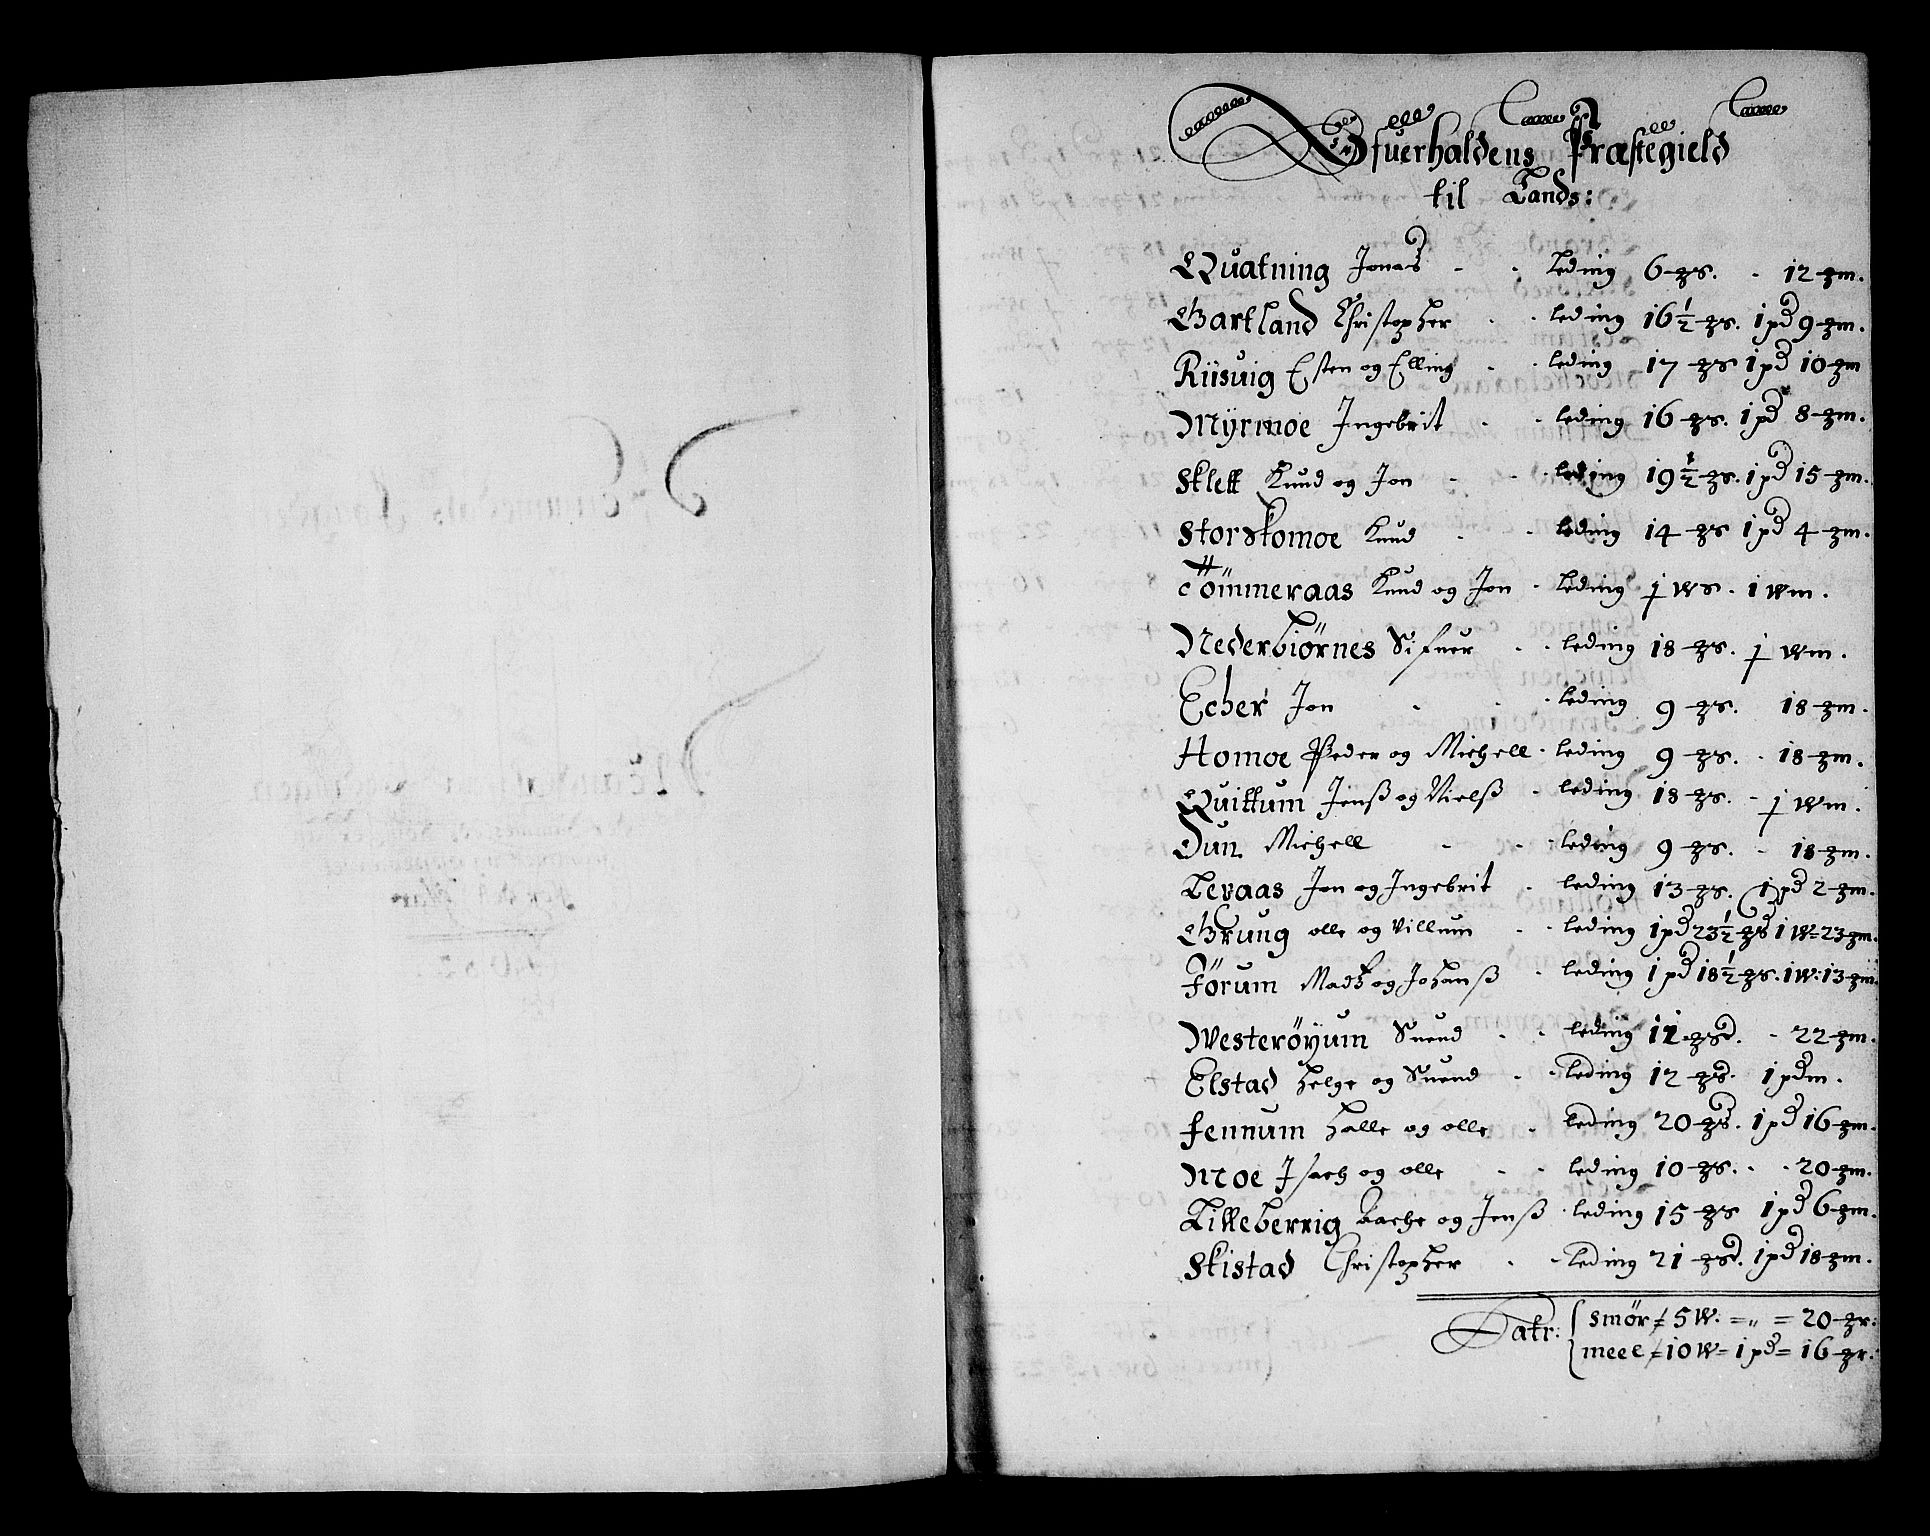 Ofuerhaldens Præstegield
til Lands:
Quatning Jonas - - leding 6 ƶs. - 12 ƶm.
Gartland Christopher - - leding 16½ ƶs. 1 pd 9 ƶm.
Riisuig Esten og Elling - - leding 17 ƶs 1 pd 10 ƶm
Mÿrmoe Ingebrit - - leding 16 ƶs. 1 pd 8 ƶm.
Sklett Knud og Jon - - leding 19½ ƶs. 1 pd 15 ƶm.
Storskomoe Knud - - leding 14 ƶs 1 pd 4 ƶm.
Tömmeraas Knud og Jon - leding j ws. 1 wm.
Nederbiörnes Sifuer - - leding 18 ƶs. j wm.
Echer Jon - - leding 9 ƶs. 18 ƶm.
Homoe Peder og Michell - leding 9 ƶs. - 18 ƶm.
Quittum Jenß og Nielß - leding 18 ƶs. - j wm.
Dun Michell - - leding 9 ƶs. - 18 ƶm.
Levaas Jon og Ingebrit - leding 13 ƶs. 1 pd 2 ƶm.
Grung olle og Villum - - leding 1 pd 23½ ƶs 1 W= 23 ƶm.
Förum Madtz og Johanß - leding 1 pd 18½ ƶs. 1 W: 13 ƶm
Westeröyum Suend - - leding 11 ƶs. - 22 ƶm.
Elstad Helge og Suend - - leding 12 ƶs. 1 pdm.
Fennum Halle og olle - leding 20 ƶs. 1 pd 16 ƶm.
Moe Isach og olle - - leding 10 ƶs. - - 20 ƶm.
Lilleberrig Bache og Jenß - leding 15 ƶs 1 pd 6 ƶm.
Skistad Christopher - - leding 21 ƶs. 1 pd 18 ƶm.
Latr: smör = 5 W. = „ = 20 ƶr:
meel = 10 W = 1 pd = 16 ƶr: